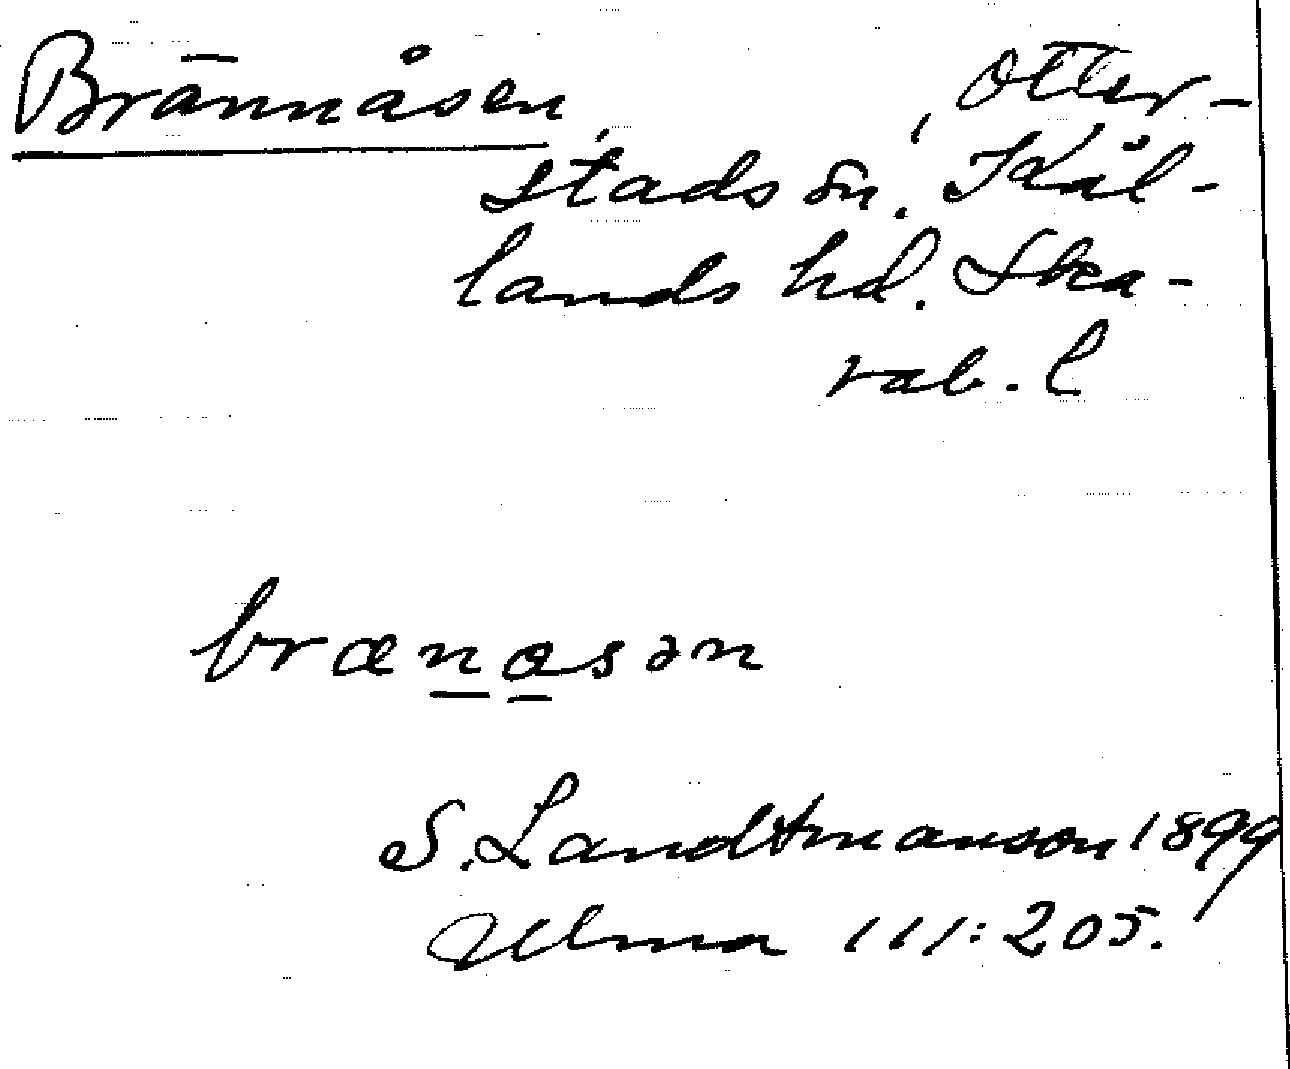 Brännåsen, Otter-
stads sn. Kål-
lands hd. Ska-
rab. l
brænasən
S. Landtmanson 1899
Ulma 111:205.